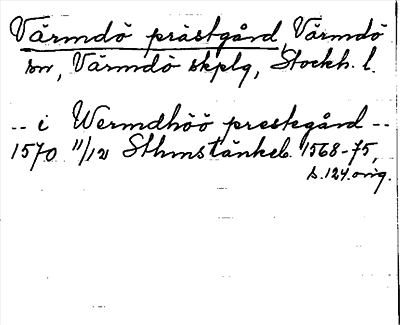 Värmdö prästgård Värmdö
sn, Värmdö skplg, Stockh. l.
-- i Wermdhöö prestegård --
1570 11/12 Sthmstänkeb. 1568-75,
s.124.orig.